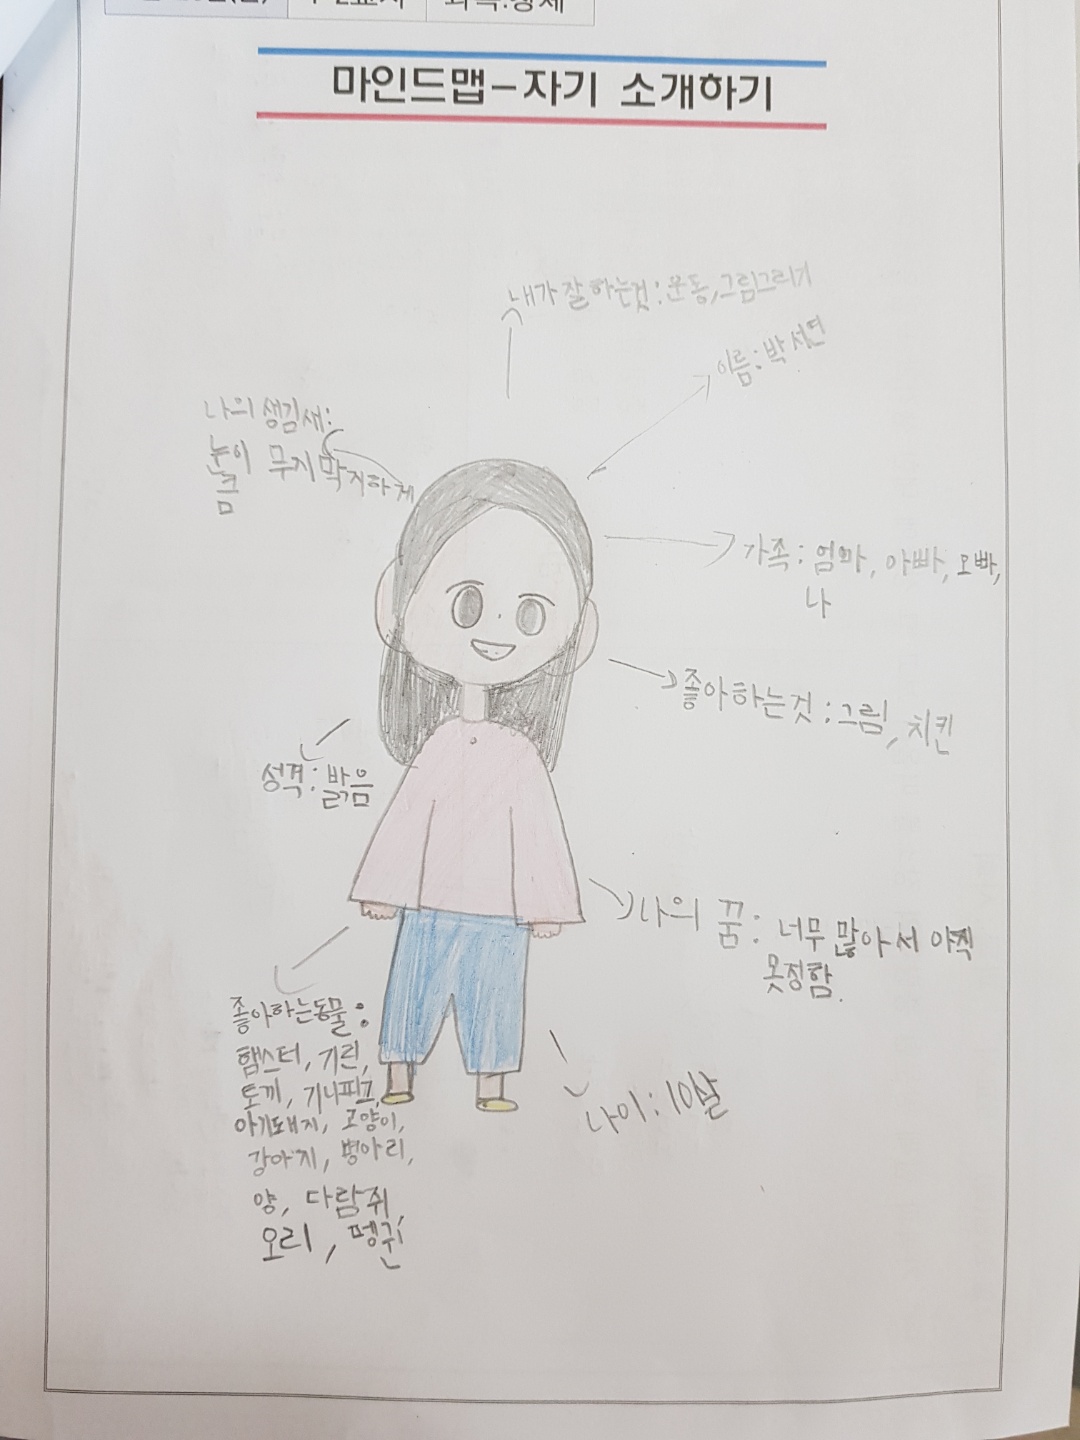 마인드맵-자기 소개하기
내가 잘하는것:운동,그림그리기
이름:박서연
나의 생김새:
눈이 무지막지하게
큼
가족: 엄마, 아빠, 오빠,
나
좋아하는것:그림, 치킨
성격:밝음
나의 꿈: 너무 많아서 아직
못정함.
좋아하는동물:
햄스터, 기린,
토끼, 기니피그,
아기돼지, 고양이,
강아지, 병아리,
양, 다람쥐,
오리, 펭귄
나이:10살